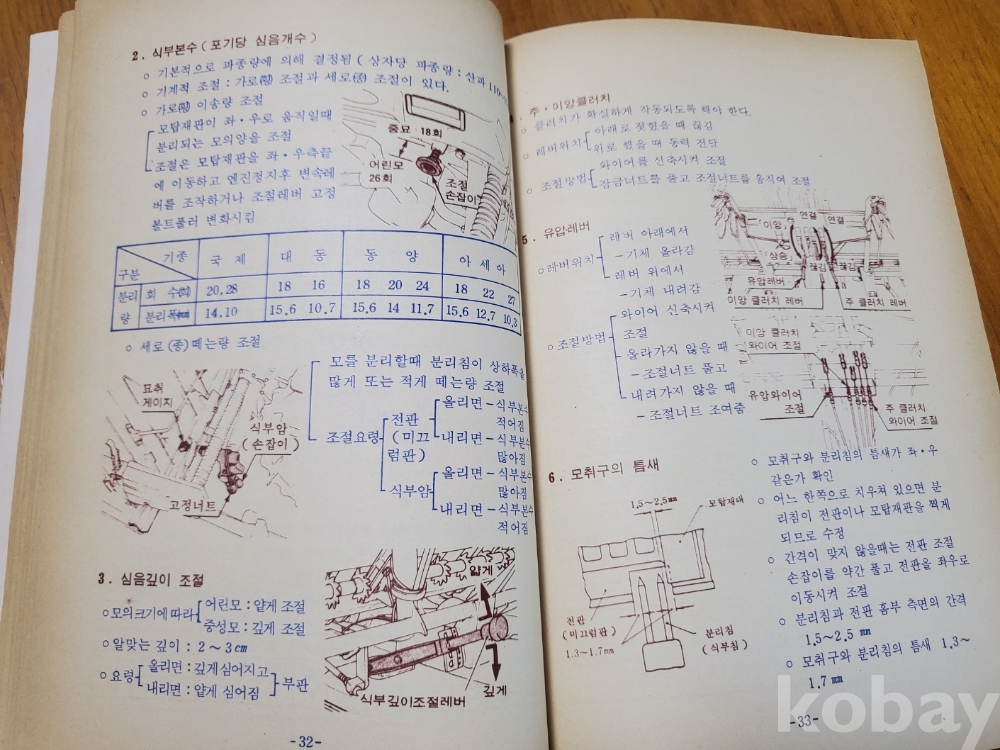 2. 식부본수 (포기당 심음개수)
○ 기본적으로 파종량에 의해 결정됨 (상자당 파종량 : 산파 110
○ 기계적 조절 : 가로(橫) 조절과 세로(縱) 조절이 있다.
○ 가로(橫) 이송량 조절
모탑재판이 좌·우로 움직일때
분리되는 모의양을 조절
조절은 모탑재판을 좌·우측끝
에 이동하고 엔진정지후 변속레
버를 조작하거나 조절레버 고정
볼트풀러 변화시킴
중묘 18회
어린모
26회
조절
손잡이
구분 기종 국제 대동 동양 아세아
분리 회 수(회) 20,28 18 16 18 20 24 18 22 27
량 분리폭㎜ 14.10 15.6 10.7 15.6 14 11.7 15.6 12.7 10.3
○ 세로(종)떼는량 조절
모를 분리할때 분리침이 상하폭을
많게 또는 적게 떼는량 조절
조절요령
전판
(미끄
럼판)
올리면 - 식부본수
적어짐
내리면 - 식부본수
많아짐
식부암
올리면 - 식부본수
많아짐
내리면 - 식부본수
적어짐
묘취
게이지
식부암
(손잡이)
고정너트
3. 심음깊이 조절
○모의크기에따라
어린모 : 얕게 조절
중성모 : 깊게 조절
○알맞는 깊이 : 2~3cm
○요령
올리면 : 깊게심어지고
내리면 : 얕게 심어짐
부판
얕게
깊게
식부깊이조절레버
-32-
주·이앙클러치
○ 클러치가 확실하게 작동되도록 해야 한다.
○ 레버위치
아래로 젖혔을 때 끊김
위로 했을 때 동력 전달
○ 조절방법
와이어를 신축시켜 조절
잠금너트를 풀고 조절너트를 움직여 조절
5. 유압레버
○레버위치
레버 아래에서
-기체 올라감
레버 위에서
-기체 내려감
○조절방법
와이어 신축시켜
조절
올라가지 않을 때
-조절너트 풀고
내려가지 않을 때
-조절너트 조여줌
이앙
연결
연결
상승
끊김
끊김
유압레버
이앙 클러치 레버
주 클러치 레버
이앙 클러치
와이어 조절
유압와이어
조절
주 클러치
와이어 조절
6. 모취구의 틈새
1,5~2,5㎜
모탑재대
전판
(미끄럼판)
1.3~1.7㎜
분리침
(식부침)
○ 모취구와 분리침의 틈새가 좌·우
같은가 확인
○ 어느 한쪽으로 치우쳐 있으면 분
리침이 전판이나 모탑재판을 찍게
되므로 수정
○ 간격이 맞지 않을때는 전판 조절
손잡이를 약간 풀고 전판을 좌우로
이동시켜 조절
○ 분리침과 전판 홈부 측면의 간격
1,5~2,5 ㎜
○ 모취구와 분리침의 틈새 1,3~
1,7㎜
-33-
kobay